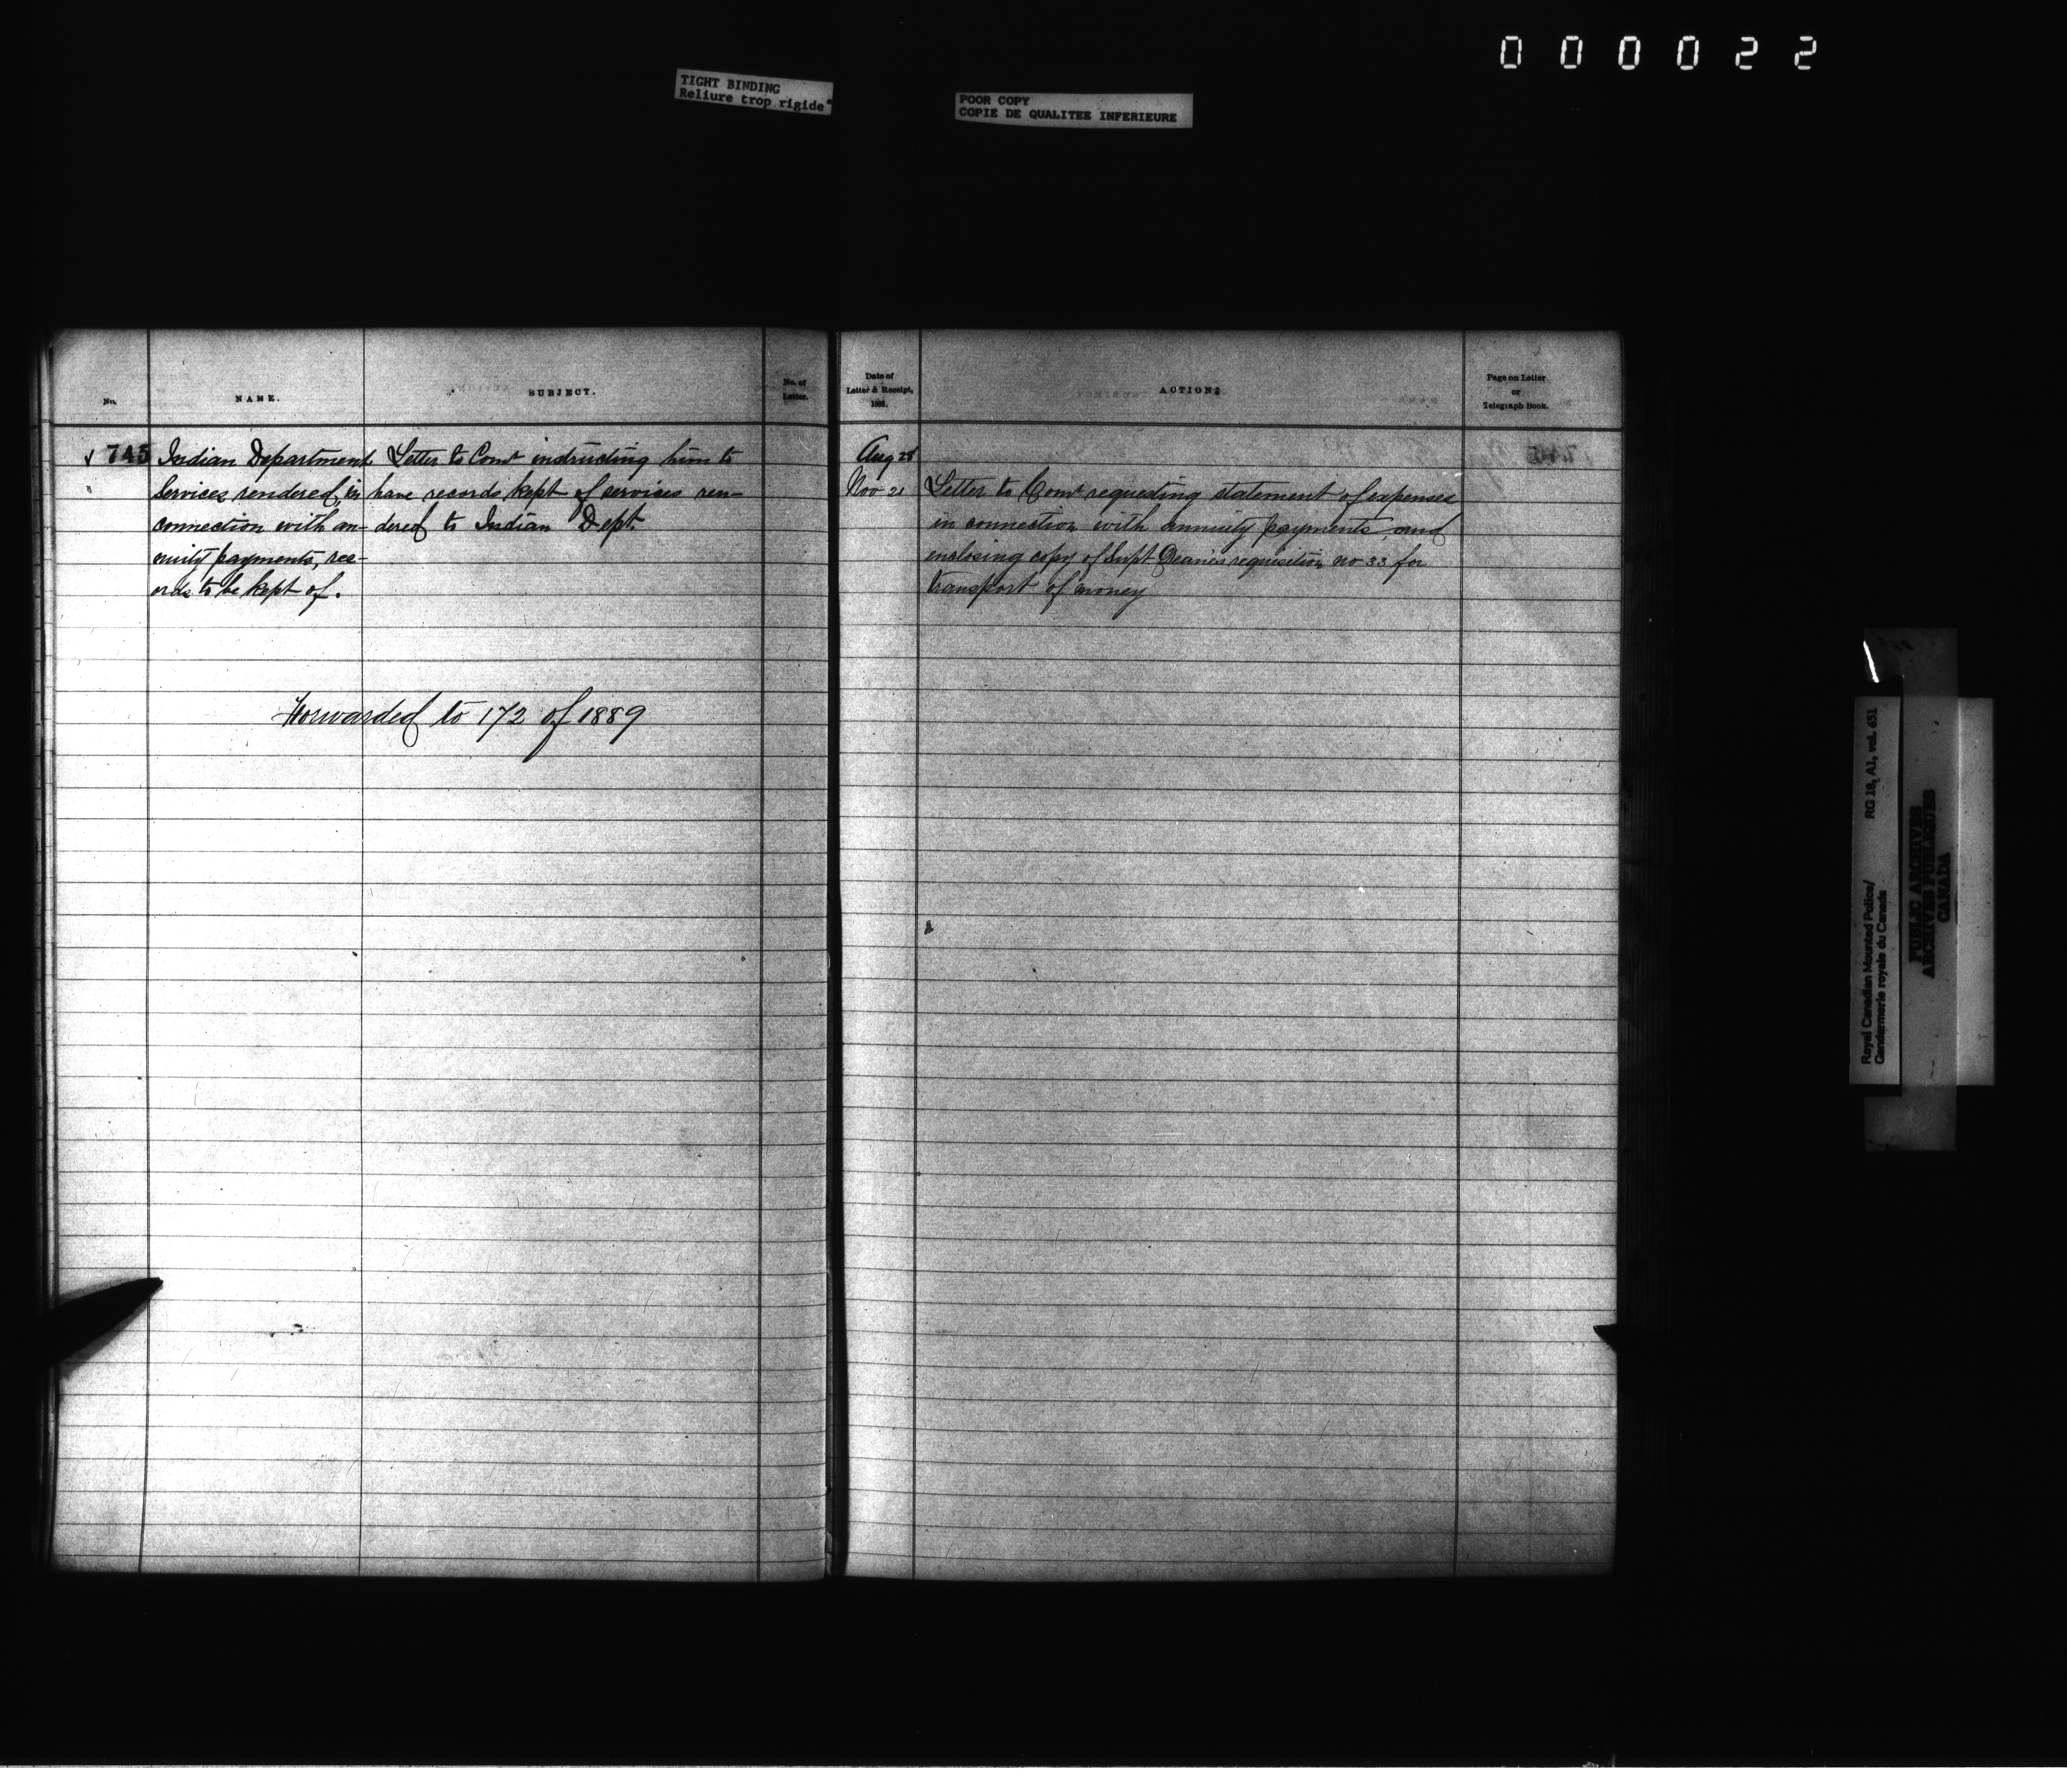 000022
TIGHT BINDING
Reliure trop rigide
POOR COPY
COPIE DE QUALITEE INFERIEURE
No.
NAME.
SUBJECT.
No. of
Letter.
745
Indian Department
Services rendered, in
connection with an-
nuity payments, rec-
ords to be kept of.
Letter to Comr instructing him to
have records kept of services ren-
dered to Indian Dept.
Forwarded to 172 of 1889
Date of
Letter & Receipt,
188
ACTION:
Page on Letter
or
Telegraph Book.
Aug 28
Nov 21
Letter to Comr requesting statement of expenses
in connection with annuity payments, and
enclosing copy of Supt Deane's requisition no 33 for
transport of money
Royal Canadian Mounted Police/
Gendarmerie royale du Canada
RG 18, A1, vol. 651
PUBLIC ARCHIVES
ARCHIVES PUBLIQUES
CANADA